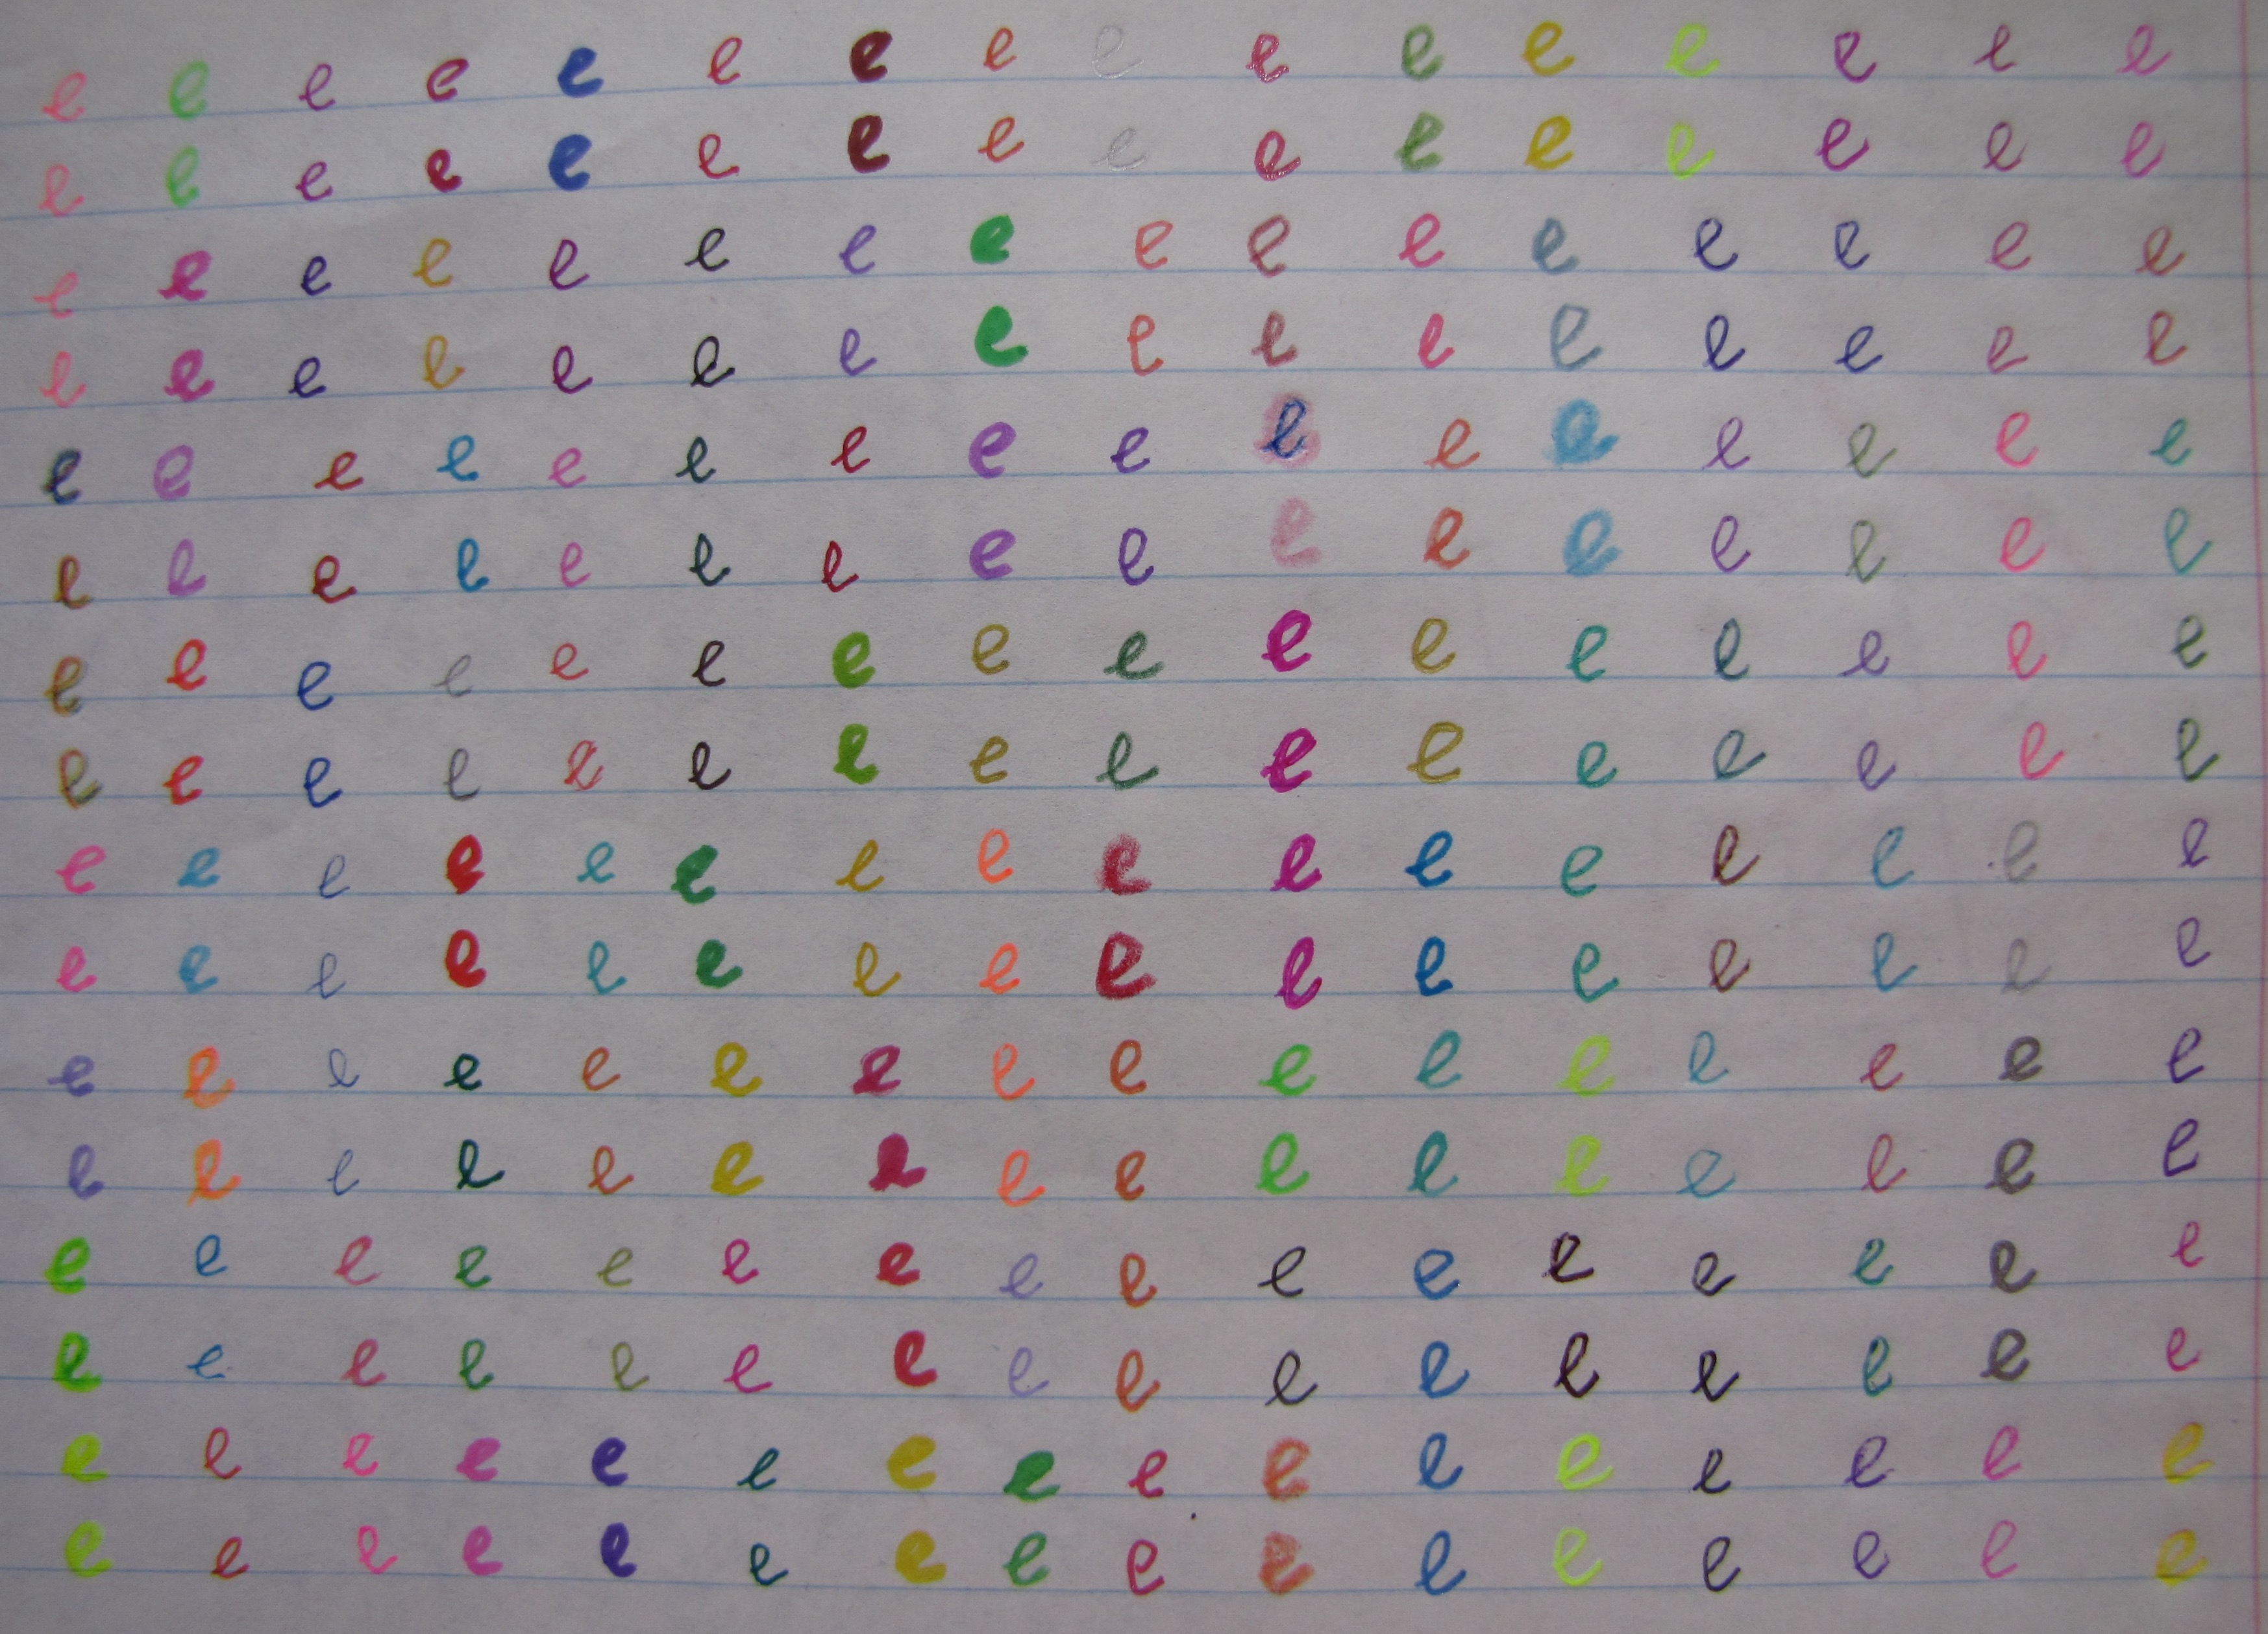 e e e e e e e e e e e e e e e e
e e e e e e e e e e e e e e e e
e e e e e e e e e e e e e e e e
e e e e e e e e e e e e e e e e
e e e e e e e e e e e e e e e e
e e e e e e e e e e e e e e e e
e e e e e e e e e e e e e e e e
e e e e e e e e e e e e e e e e
e e e e e e e e e e e e e e e e
e e e e e e e e e e e e e e e e
e e e e e e e e e e e e e e e e
e e e e e e e e e e e e e e e e
e e e e e e e e e e e e e e e e
e e e e e e e e e e e e e e e e
e e e e e e e e e e e e e e e e
e e e e e e e e e e e e e e e e